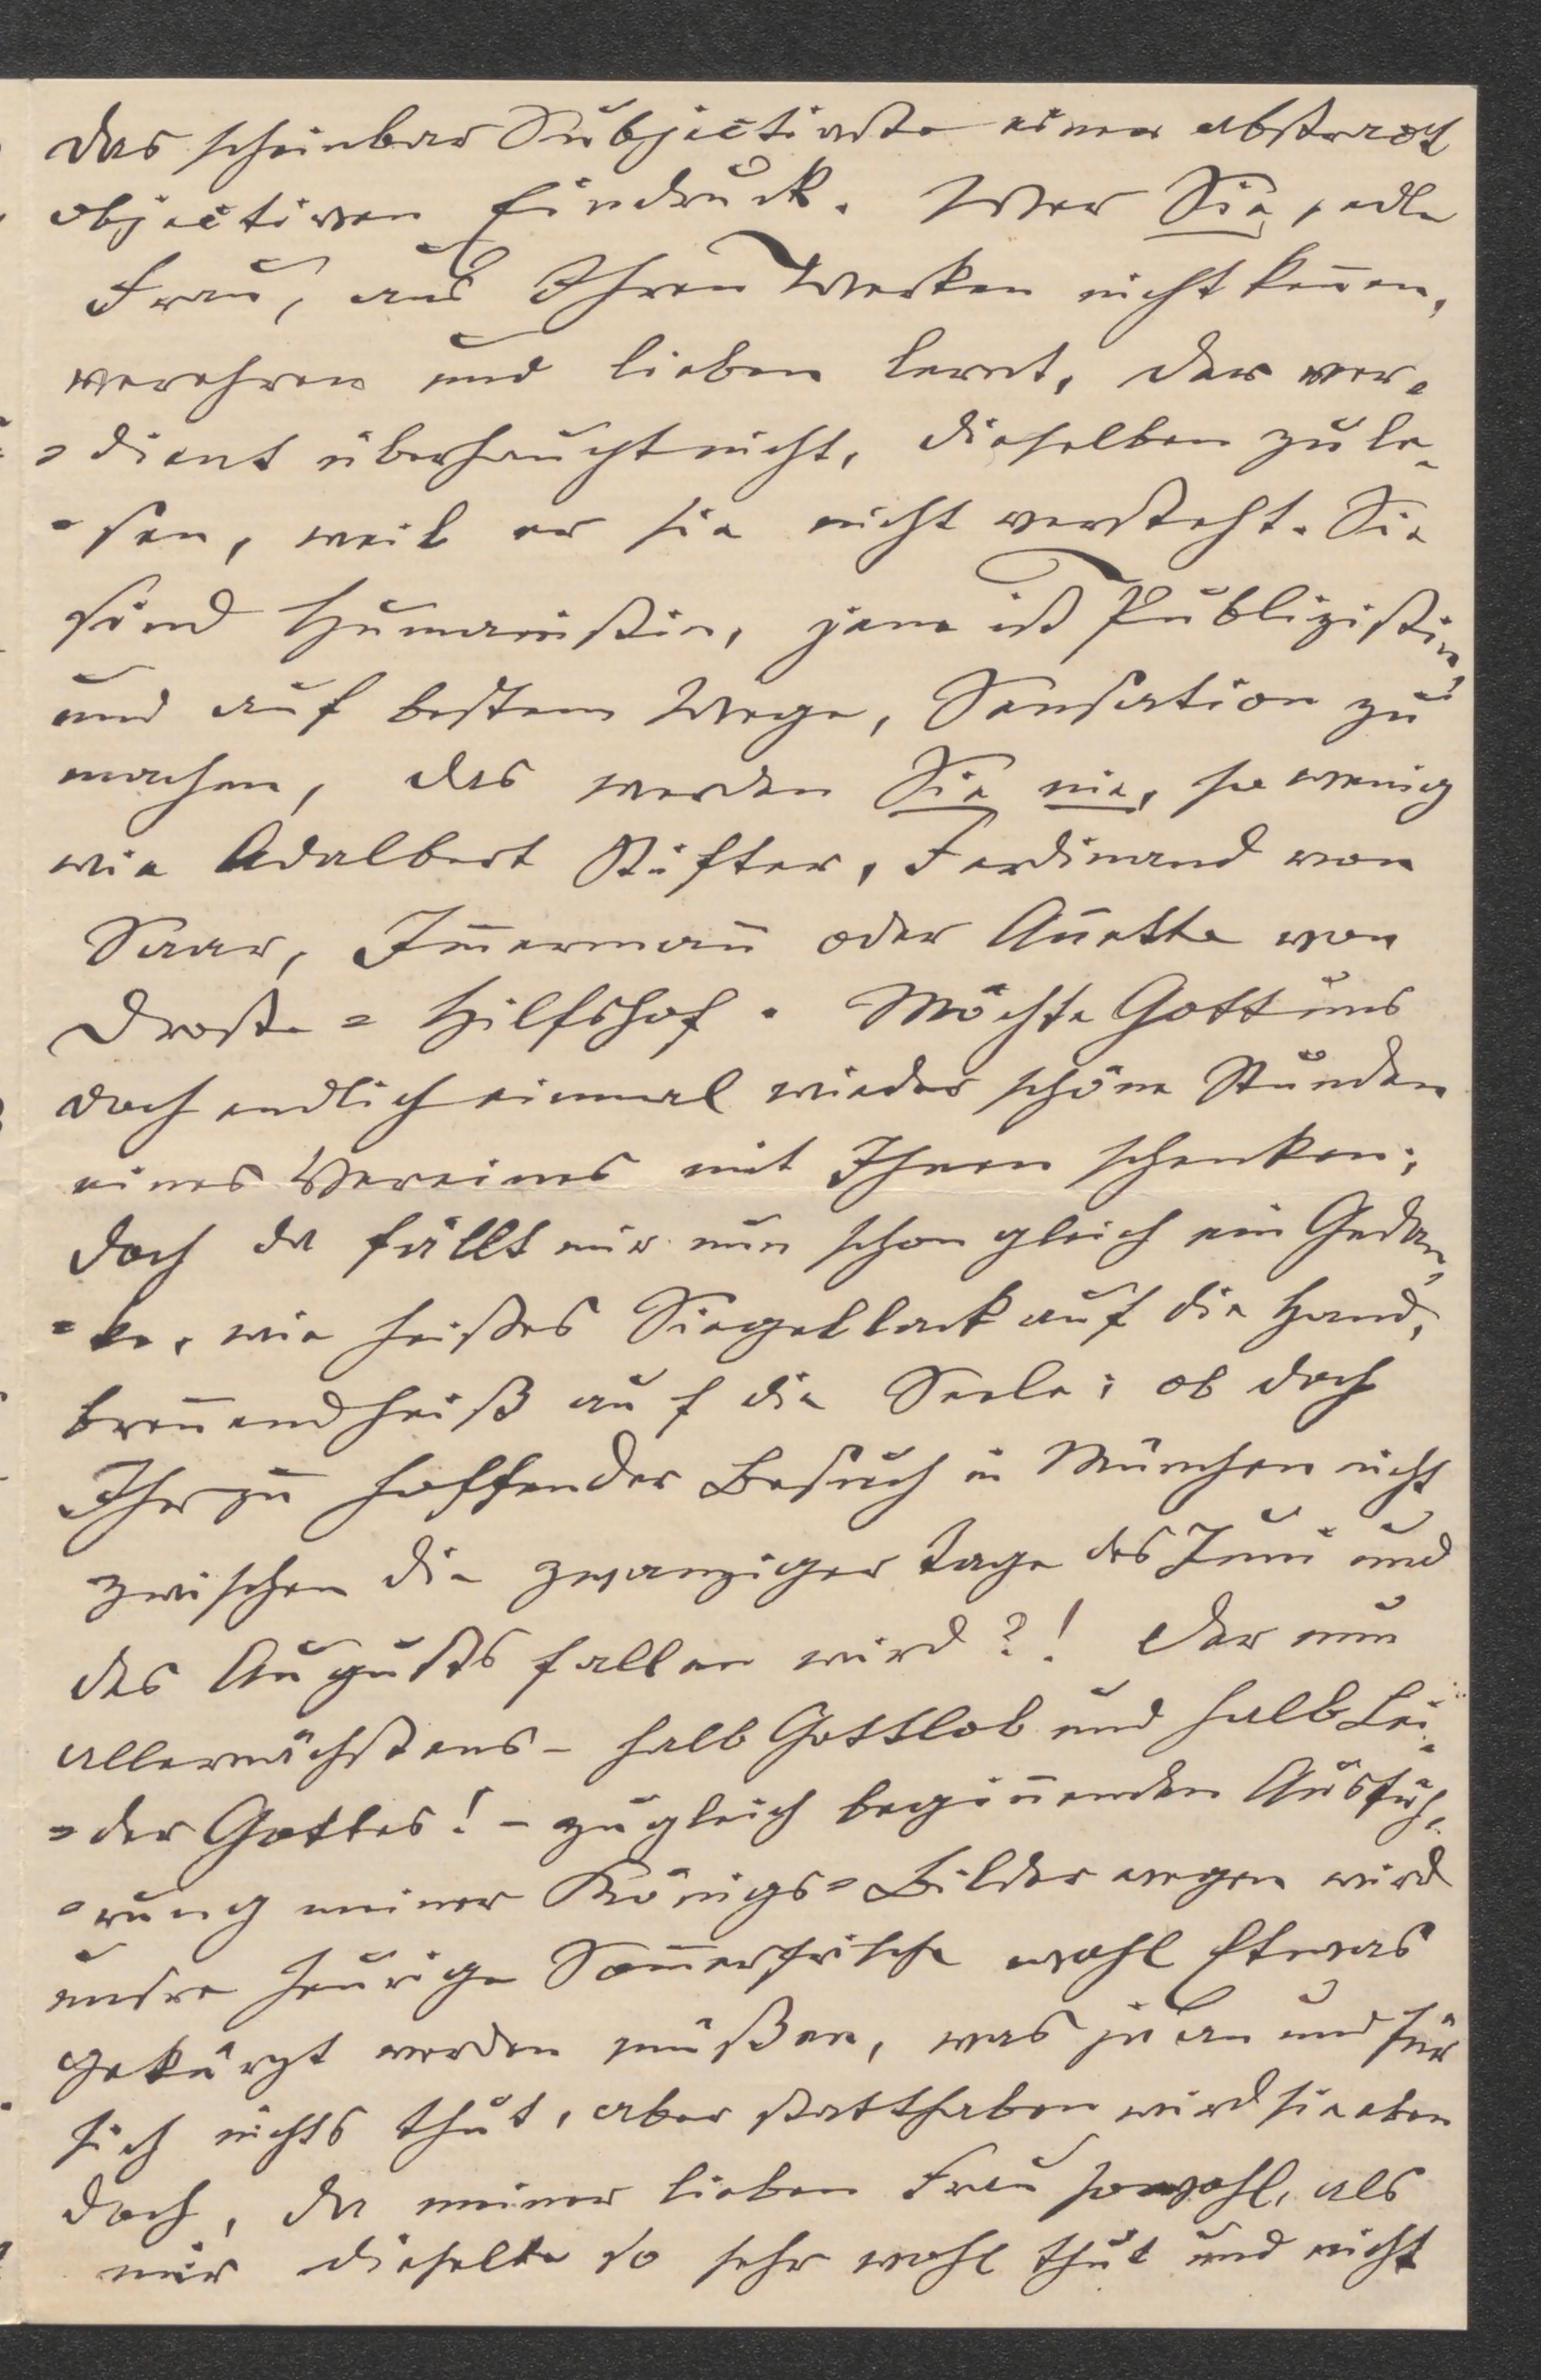 das scheinbar Subjectivste einen abstract
objectiven Eindruck. Wer Sie, edle
Frau, aus Ihren Werken nicht keñen,
verehren und lieben lernt, der ver-
=dient überhaupt nicht, dieselben zu le-
=sen, weil er sie nicht versteht. Sie
sind Humanistin, jene ist Publizistin
und auf bestem Wege, Sensation zu
machen, das werden Sie nie, so wenig
wie Adalbert Stifter, Ferdinand von
Saar, Im̄ermañ oder Añette von
Droste=Hilfshof. Möchte Gott uns
doch endlich einmal wieder schöne Stunden
eines Vereines mit Ihnen schenken;
doch da fällt mir nun schon gleich ein Gedan-
=ke, wie heißes Siegellack auf die Hand,
breñend heiß auf die Seele: ob doch
Ihr zu hoffender Besuch in München nicht
zwischen die zwanziger Tage des Juni und
des Augusts fallen wird?! Der nun
allernächstens – halb Gottlob und halb Lei-
=der Gottes! – zugleich begiñenden Ausfüh-
=rung meiner Königs=Bilder wegen wird
unsre heurige Som̄erfrische wohl Etwas
gekürzt werden müßen, was ja an und für
sich nichts thut, aber statthaben wird sie eben
doch, da meiner lieben Frau sowohl, als
mir dieselbe so sehr wohl thut und nicht